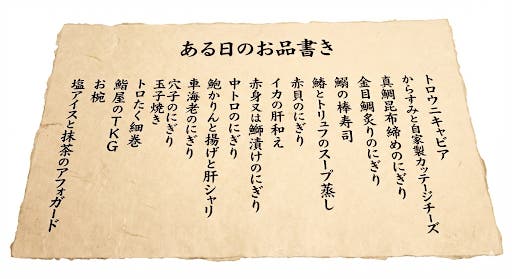 ある日のお品書き
トロウニキャビア
からすみと自家製カッテージチーズ
真鯛昆布締めのにぎり
金目鯛炙りのにぎり
鰯の棒寿司
鰆とトリュフのスープ蒸し
赤貝のにぎり
イカの肝和え
赤身又は鰤漬けのにぎり
中トロのにぎり
鮑かりんと揚げと肝シャリ
車海老のにぎり
穴子のにぎり
玉子焼き
トロたく細巻
鮨屋のTKG
お椀
塩アイスと抹茶のアフォガード